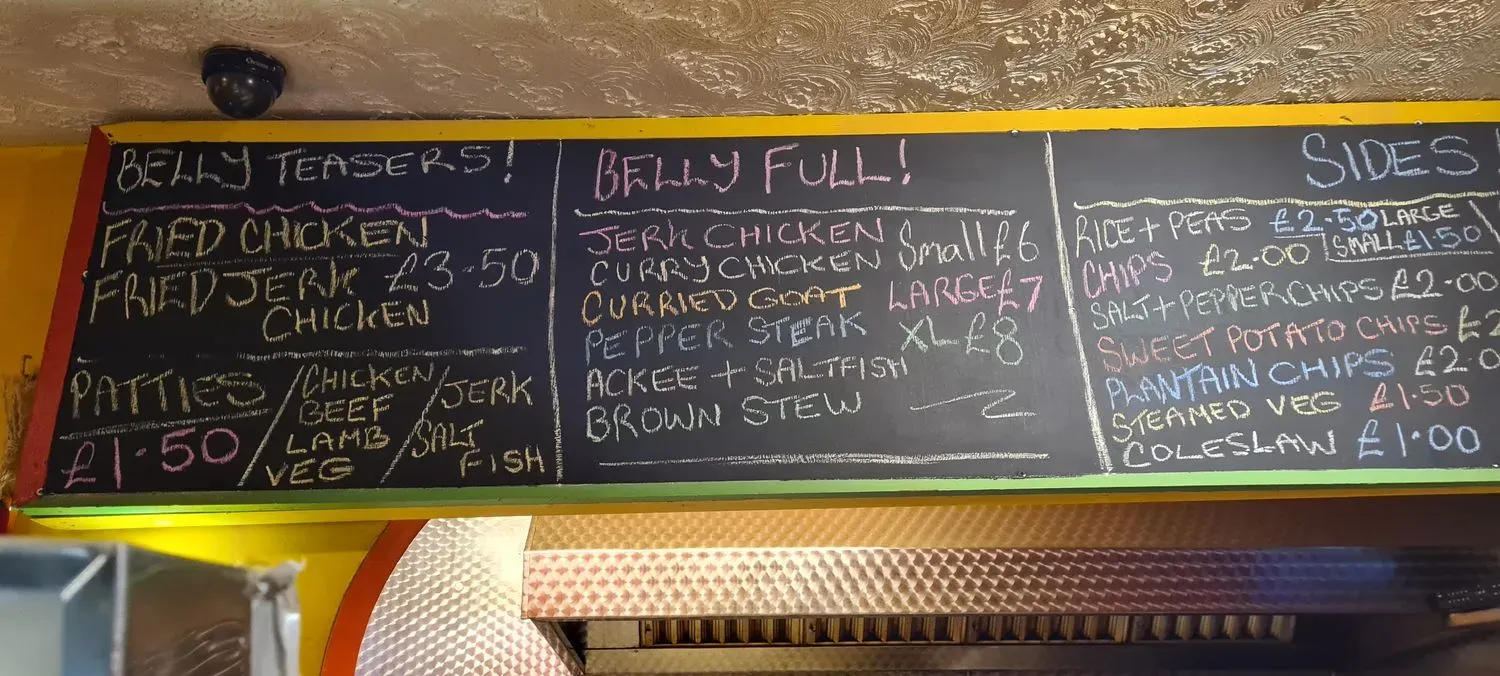 BELLY TEASERS!
FRIED CHICKEN
FRIED JERK £3.50
CHICKEN
PATTIES
£1.50
CHICKEN
BEEF
LAMB
VEG
JERK
SALT
FISH
BELLY FULL!
JERK CHICKEN Small £6
CURRY CHICKEN
CURRIED GOAT LARGE £7
PEPPER STEAK XL £8
ACKEE + SALTFISH
BROWN STEW
SIDES
RICE + PEAS £2.50 LARGE
SMALL £1.50
CHIPS £2.00
SALT + PEPPER CHIPS £2.00
SWEET POTATO CHIPS £2
PLANTAIN CHIPS £2.0
STEAMED VEG £1.50
COLESLAW £1.00